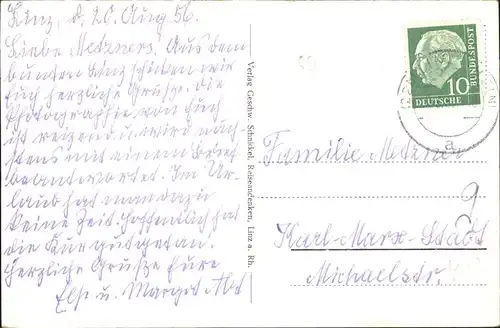 Linz, d. 20. Aug 56.
Liebe Metzners. Aus dem
bunten Linz schicken wir
Euch herzliche Grüsse. Die
Photographie von Euch
ist reizend u. wird näch-
stens mit einem Brief
beantwortet. Im Ur-
laub hat man dazu
keine Zeit. Hoffentlich hat
die Kur gutgetan.
Herzliche Grüsse Eure
Else u. Margot Abt
Verlag Geschw. Schnickel, Reiseandenken, Linz a. Rh.
10
DEUTSCHE
BUNDESPOST
a
Familie Metzner
9
Karl-Marx-Stadt
Michaelstr.